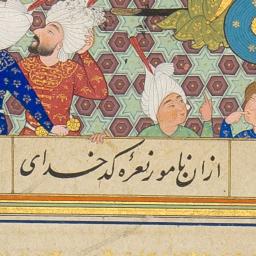 ازان نامور نعرهٔ کدخدای